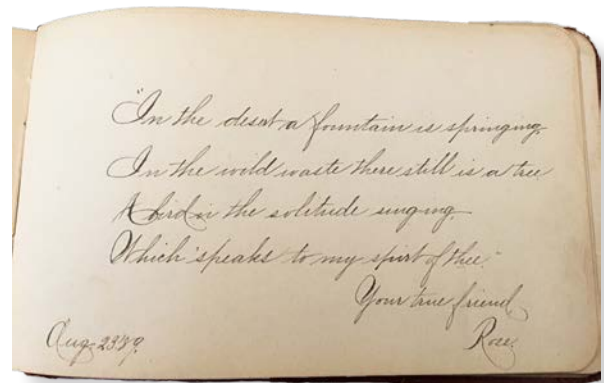 "In the desert a fountain is springing.
In the wild waste there still is a tree
A bird in the solitude singing.
Which speaks to my spirt of thee."
Your true friend
Rose.
Aug. 23